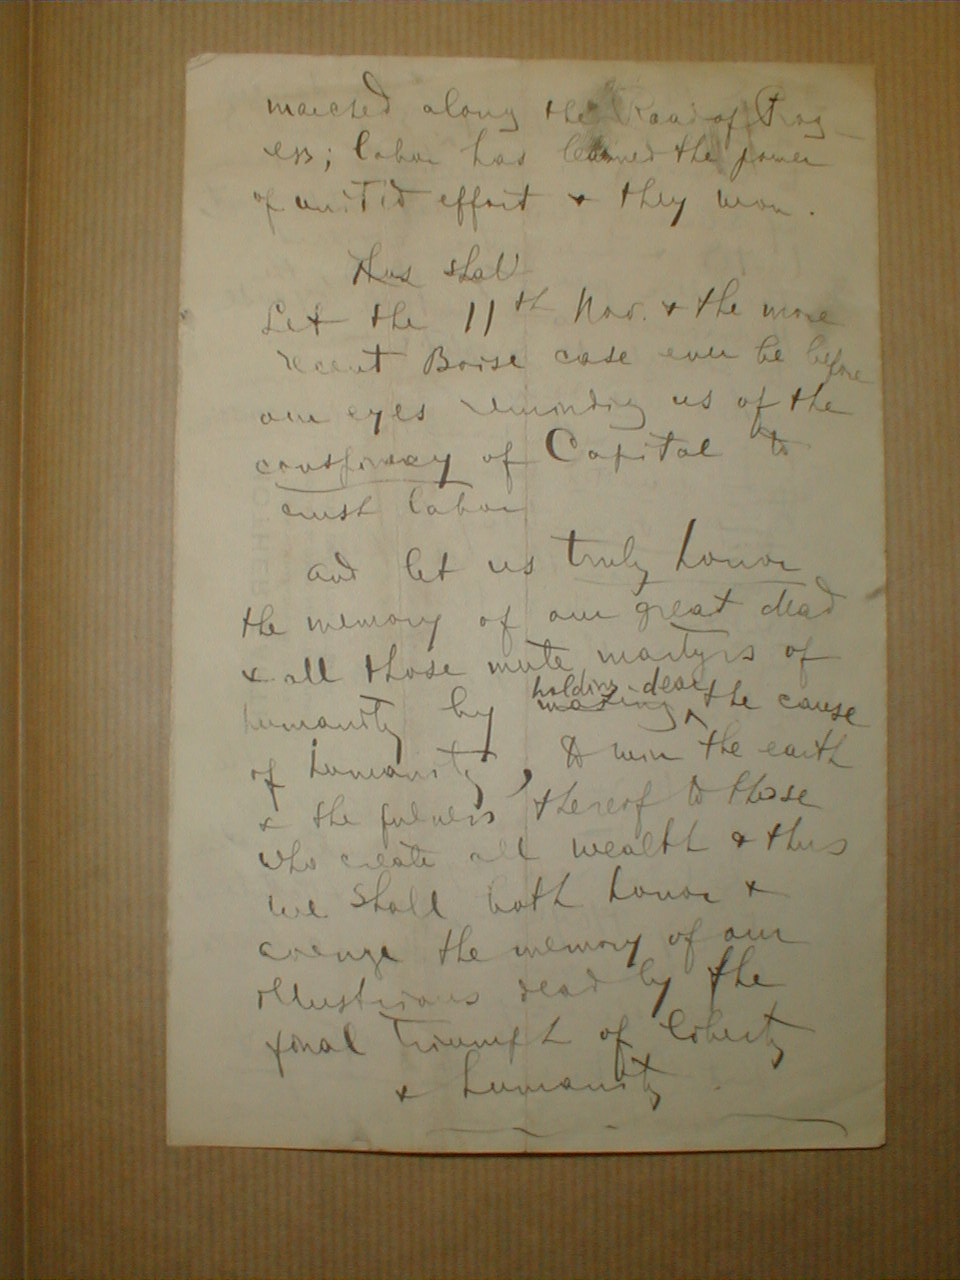 marched along the Road of Prog-
ess; labor has learned the power
of united effort & they won.
Thus shall
Let the 11th Nov. & the more
recent Boise case ever be before
our eyes reminding us of the
conspiracy of Capital to
crush labor
and let us truly honor
the memory of our great dead
& all those mute martyrs of
holding dear
humanity by making the cause
of humanity, & win the earth
& the fulness thereof to those
who create all wealth & thus
we shall both honor &
avenge the memory of our
illustrious dead by the
final triumph of liberty
& humanity.